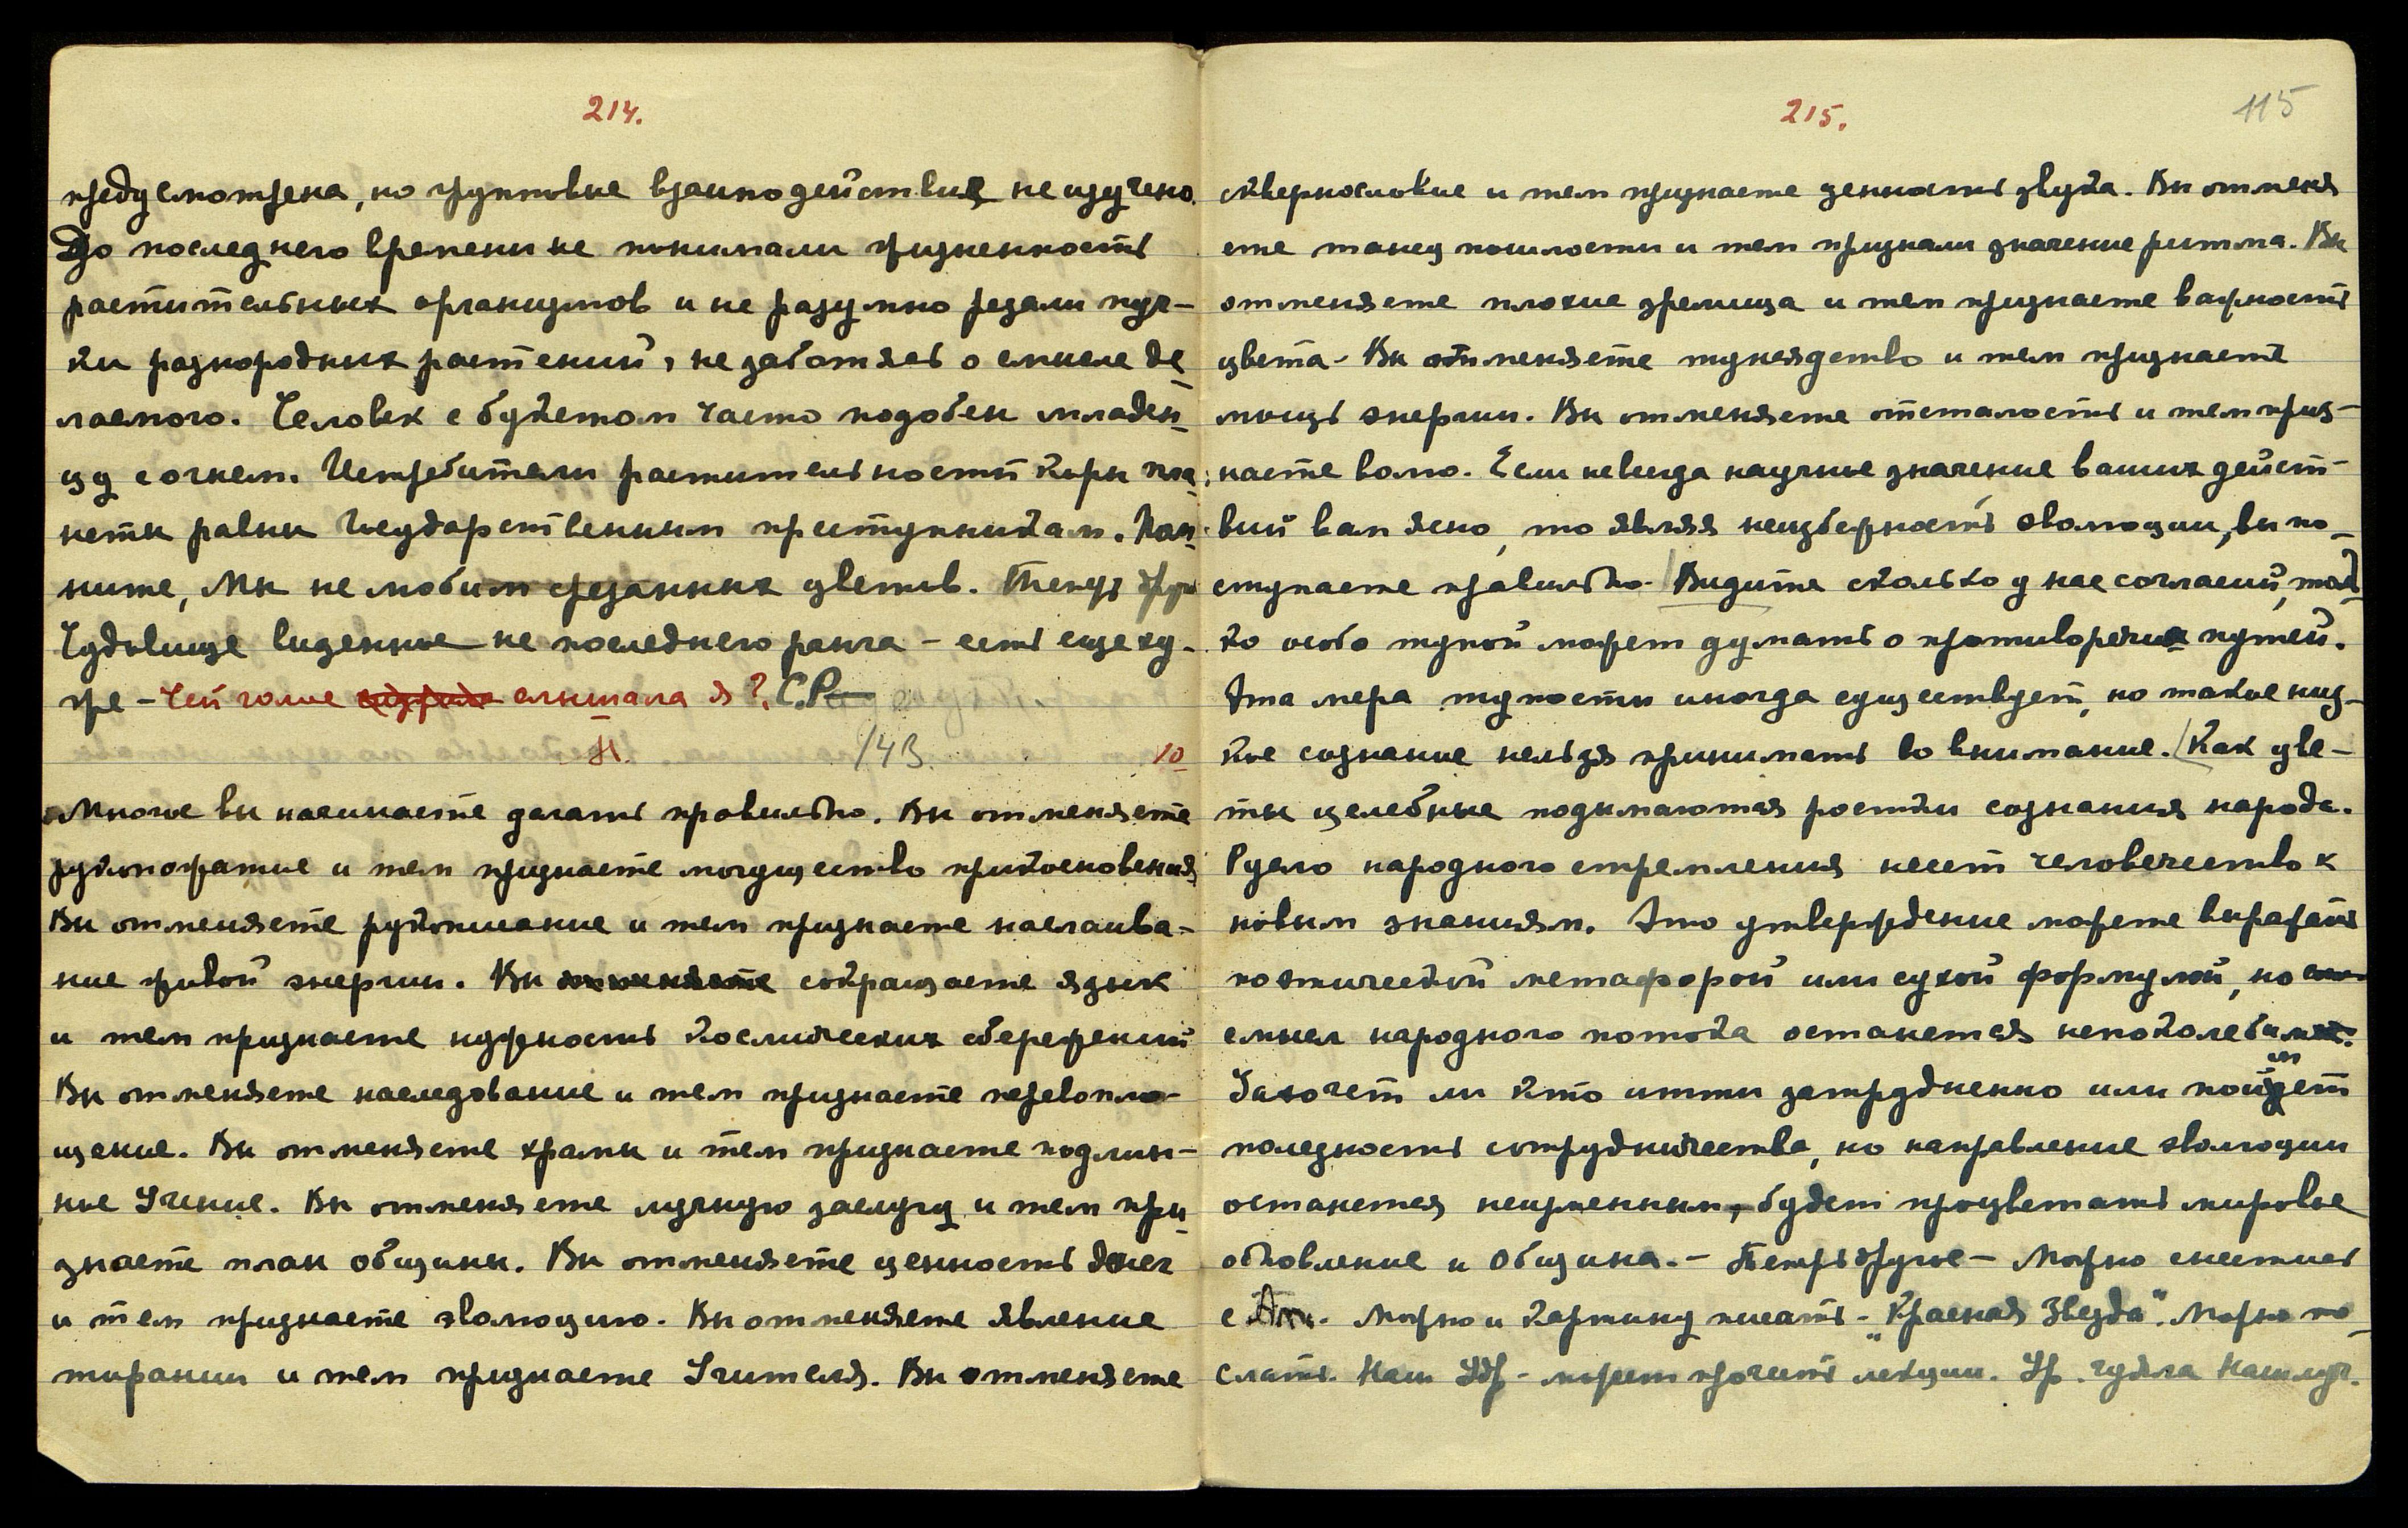 214.
предусмотрена, но групповые взаимодействия не изучено.
До последнего времени не понимали жизненность
растительных организмов и не разумно резали пуч-
ки разнородных растений, не заботясь о смысле де-
лаемого. Человек с букетом часто подобен младен-
цу с огнем. Истребители растительности коры пла-
неты равны государственным преступникам. Пом-
ните, Мы не любим срезанных цветов. Теперь
Чудовище виденное не последнего ранга - есть еще ху-
же - Чей голос слышала я? С.Р.
11. 14В. 10
Многое вы начинаете делать правильно. Вы отменяете
рукопожатие и тем признаете могущество прикосновения.
Вы отменяете рукописание и тем признаете наслаива-
ние живой энергии. Вы сокращаете язык
и тем признаете нужность космических сбережений
Вы отменяете наследование и тем признаете перевопло-
щение. Вы отменяете храмы и тем признаете подлин-
ное Учение. Вы отменяете личную заслугу и тем при-
знаете план общины. Вы отменяете ценность денег
и тем признаете эволюцию. Вы отменяете явление
тирании и тем признаете Учителя. Вы отменяете
215.
115
сквернословие и тем признаете ценность звука. Вы отменя
ете танец пошлости и тем признали значение ритма. Вы
отменяете плохие зрелища и тем признаете важность
цвета - Вы отменяете тунеядство и тем признаете
мощь энергии. Вы отменяете отсталость и тем приз-
наете волю. Если не всегда научное значение ваших дейст-
вий вам ясно, то являя неизбежность эволюции, вы по-
ступаете правильно. Видите сколько у нас согласий, толь-
ко особо тупой может думать о противоречии путей.
Эта мера тупости иногда существует, но такое низ-
кое сознание нельзя принимать во внимание. Как цве-
ты целебные подымаются ростки сознания народа.
Русло народного стремления несет человечество к
новым знаниям. Это утверждение можете выражать
поэтической метафорой или сухой формулой, но
смысл народного потока останется непоколебим.
Захочет ли кто итти затрудненно или поймет
полезность сотрудничества, но направление эволюции
останется неизменным, будет процветать мировое
обновление и Община. - Теперь другое - Можно снестись
с Ам. Можно и картину писать - „Красная Звезда". Можно по-
слать. Наш Удр - может прочесть лекции. Ур. чуяла Наш луч.